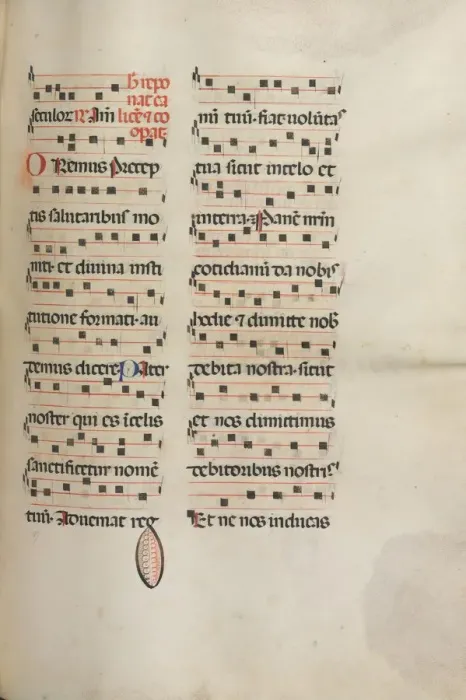 h repo
nat ca
seculor R Am̄ licē ⁊ co
opat
Oremus Precep
tis salutaribus mo
niti· et diuina insti
tutione formati· au
demus dicere· Pater
noster qui es ī celis
sanctificetur nomē
tuū· Adueniat reg
nū tuū· fiat volūtaˢ
tua sicut in celo et
in terra· Panē nr̄m
cotidianū da nobis
hodie ⁊ dimitte nob̄
debita nostra· sicut
et nos dimittimus
debitoribus nostris
Et ne nos inducas